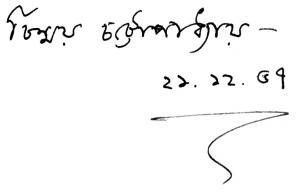 চিন্ময় চট্টোপাধ্যায় —
২১.১২.৫৭